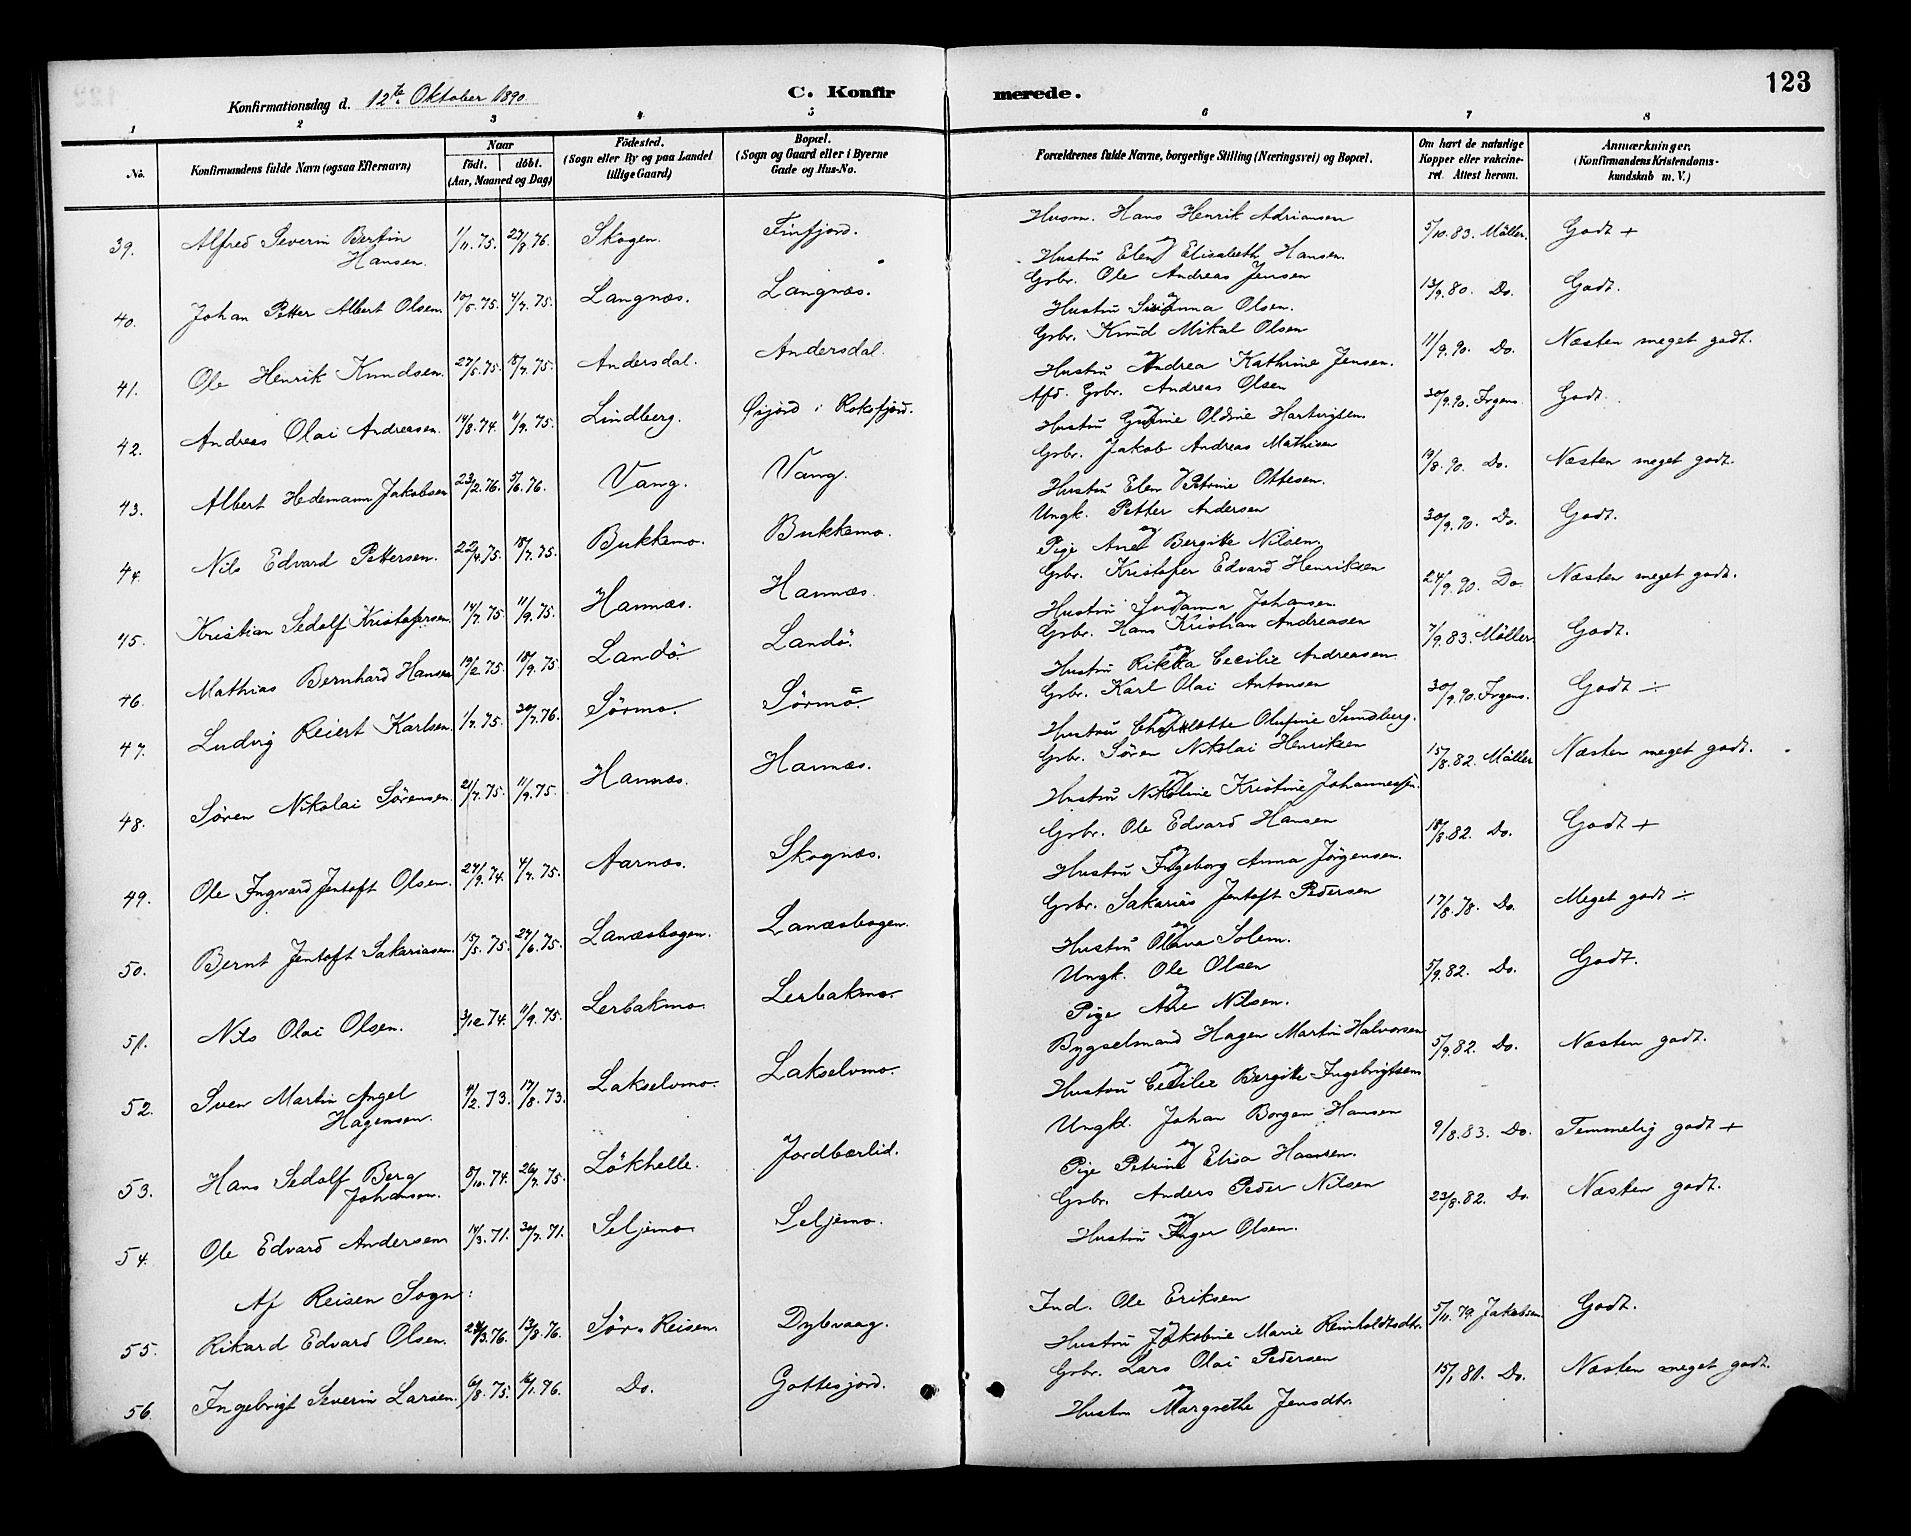 123
Konfirmationsdag d. 12te Oktober 1890
C. Konfir merede.
1 2 3 4 5 6 7 8
No. Konfirmandens fulde Navn (ogsaa Efternavn) Naar født. döbt. (Aar, Maaned og Dag) Födested. (Sogn eller By og paa Landet tillige Gaard) Bopæl. (Sogn og Gaard eller i Byerne Gade og Hus-No. Forældrenes fulde Navne, borgerlige Stilling (Næringsvei) og Bopæl. Om havt de naturlige Kopper eller vakcineret. Attest herom. Anmærkninger. (Konfirmandens Kristendomskundskab m. V.)
39. Alfred Severin Bertin Hansen. 1/11.75. 27/8.76. Skogen. Finfjord. Husm. Hans Henrik Adriansen 5/10.83. Möller. Godt +
og Hustru Elen Elisabeth Hansen.
40. Johan Petter Albert Olsen. 10/5.75. 4/7.75. Langnæs. Langnæs. Gsbr. Ole Andreas Jensen 13/9.80. Do. Godt.
og Hustru Olsen.
41. Ole Henrik Knudsen. 27/5.75. 18/7.75. Andersdal. Andersdal. Gsbr. Knud Mikal Olsen 11/9.90. Do. Næsten meget godt.
og Hustru Andrea Kathrine Jensen.
42. Andreas Olai Andreasen. 14/8.74. 11/9.75. Lindberg. Øijord i Roksfjord. Afd. Gsbr. Andreas Olsen 30/9.90. Irgens. Godt.
og Hustru Oldine Hartvigsen.
43. Albert Hedemann Jakobsen 23/2.76. 5/6.76. Vang. Vang. Gsbr. Jakob Andreas Mathisen 19/8.90. Do. Næsten meget godt.
og Hustru Elen Petrine Ottesen.
44. Nils Edvard Pettersen. 22/4.75. 18/7.75. Bukkemo. Bukkemo. Ungk. Petter Andersen 30/9.90. Do. Godt.
og Pige Ane Bergitte Nilsen.
45. Kristian Sedolf Kristofersen. 14/7.75. 11/9.75. Hannæs. Hannæs. Gsbr. Kristofer Edvard Henriksen 24/9.90. Do. Næsten meget godt.
og Hustru Johansen.
46. Mathias Bernhard Hansen 19/2.75. 18/9.75. Landö. Landö. Gsbr. Hans Kristian Andreasen 7/9.83. Möller Godt.
og Hustru Rikka Cecilie Andreasen
47. Ludvig Reiert Karlsen. 1/7.75. 30/7.76. Sörmo. Sörmo. Gsbr. Karl Olai Antonsen 30/9.90. Irgens. Godt ÷
og Hustru Charlotte Olufine Sundberg.
48. Søren Nikolai Sørensen. 2/7.75. 11/9.75. Hannæs. Hannæs. Gsbr. Søren Nikolai Henriksen 15/8.82. Möller Næsten meget godt.
og Hustru Nikoline Kristine Johannessen.
49. Ole Ingvard Jentoft Olsen. 27/9.74. 4/7.75. Aarnæs. Skognæs. Gsbr. Ole Edvard Hansen 18/8.82. Do. Godt +
og Hustru Ingeborg Anna Jörgensen.
50. Bernt Jentoft Sakariasen. 15/5.75. 27/6.75. Lanæsbogen. Lanæsbogen. Gsbr. Sakarias Jentoft Pedersen 17/8.78. Do. Meget godt ÷
og Hustru Olava Solem.
51. Nils Olai Olsen. 3/12.74. 11/9.75. Lerbakmo. Lerbakmo. Ungk. Ole Olsen 5/9.82. Do. Godt.
og Pige Ane Nilsen.
52. Sven Martin Angel Hagensen. 11/2.73. 17/8.73. Lakselvmo. Lakselvmo. Bygselmand Hagen Martin Halvorsen 5/9.82. Do. Næsten godt.
og Hustru Cecilie Bergitte Ingebrigtsen
53. Hans Sedolf Berg Johansen. 8/10.74. 26/7.75. Lökhelle. Jordbærlid. Ungkl. Johan Borgen Hansen 9/8.83. Do. Temmelig godt +
og Pige Petrine Elisa Hansen.
54. Ole Edvard Andersen 14/3.71. 30/7.71. Seljemo Seljemo. Gsbr. Anders Peder Nilsen 23/8.82. Do. Næsten godt.
og Hustru Inger Olsen.
Af Reisen Sogn:
55. Rikard Edvard Olsen. 28/3.76. 13/8.76. Sör-Reisen. Dybvaag. Ind. Ole Eriksen 5/11.79 Jakobsen Godt.
og Hustru Jakobine Marie Reinholdtsdtr.
56. Ingebrigt Severin Larsen. 6/8.75. 16/1.76. Do. Gottesjord. Gsbr. Lars Olai Pedersen 15/1.81. Do. Næsten meget godt.
og Hustru Margrethe Jensdtr.